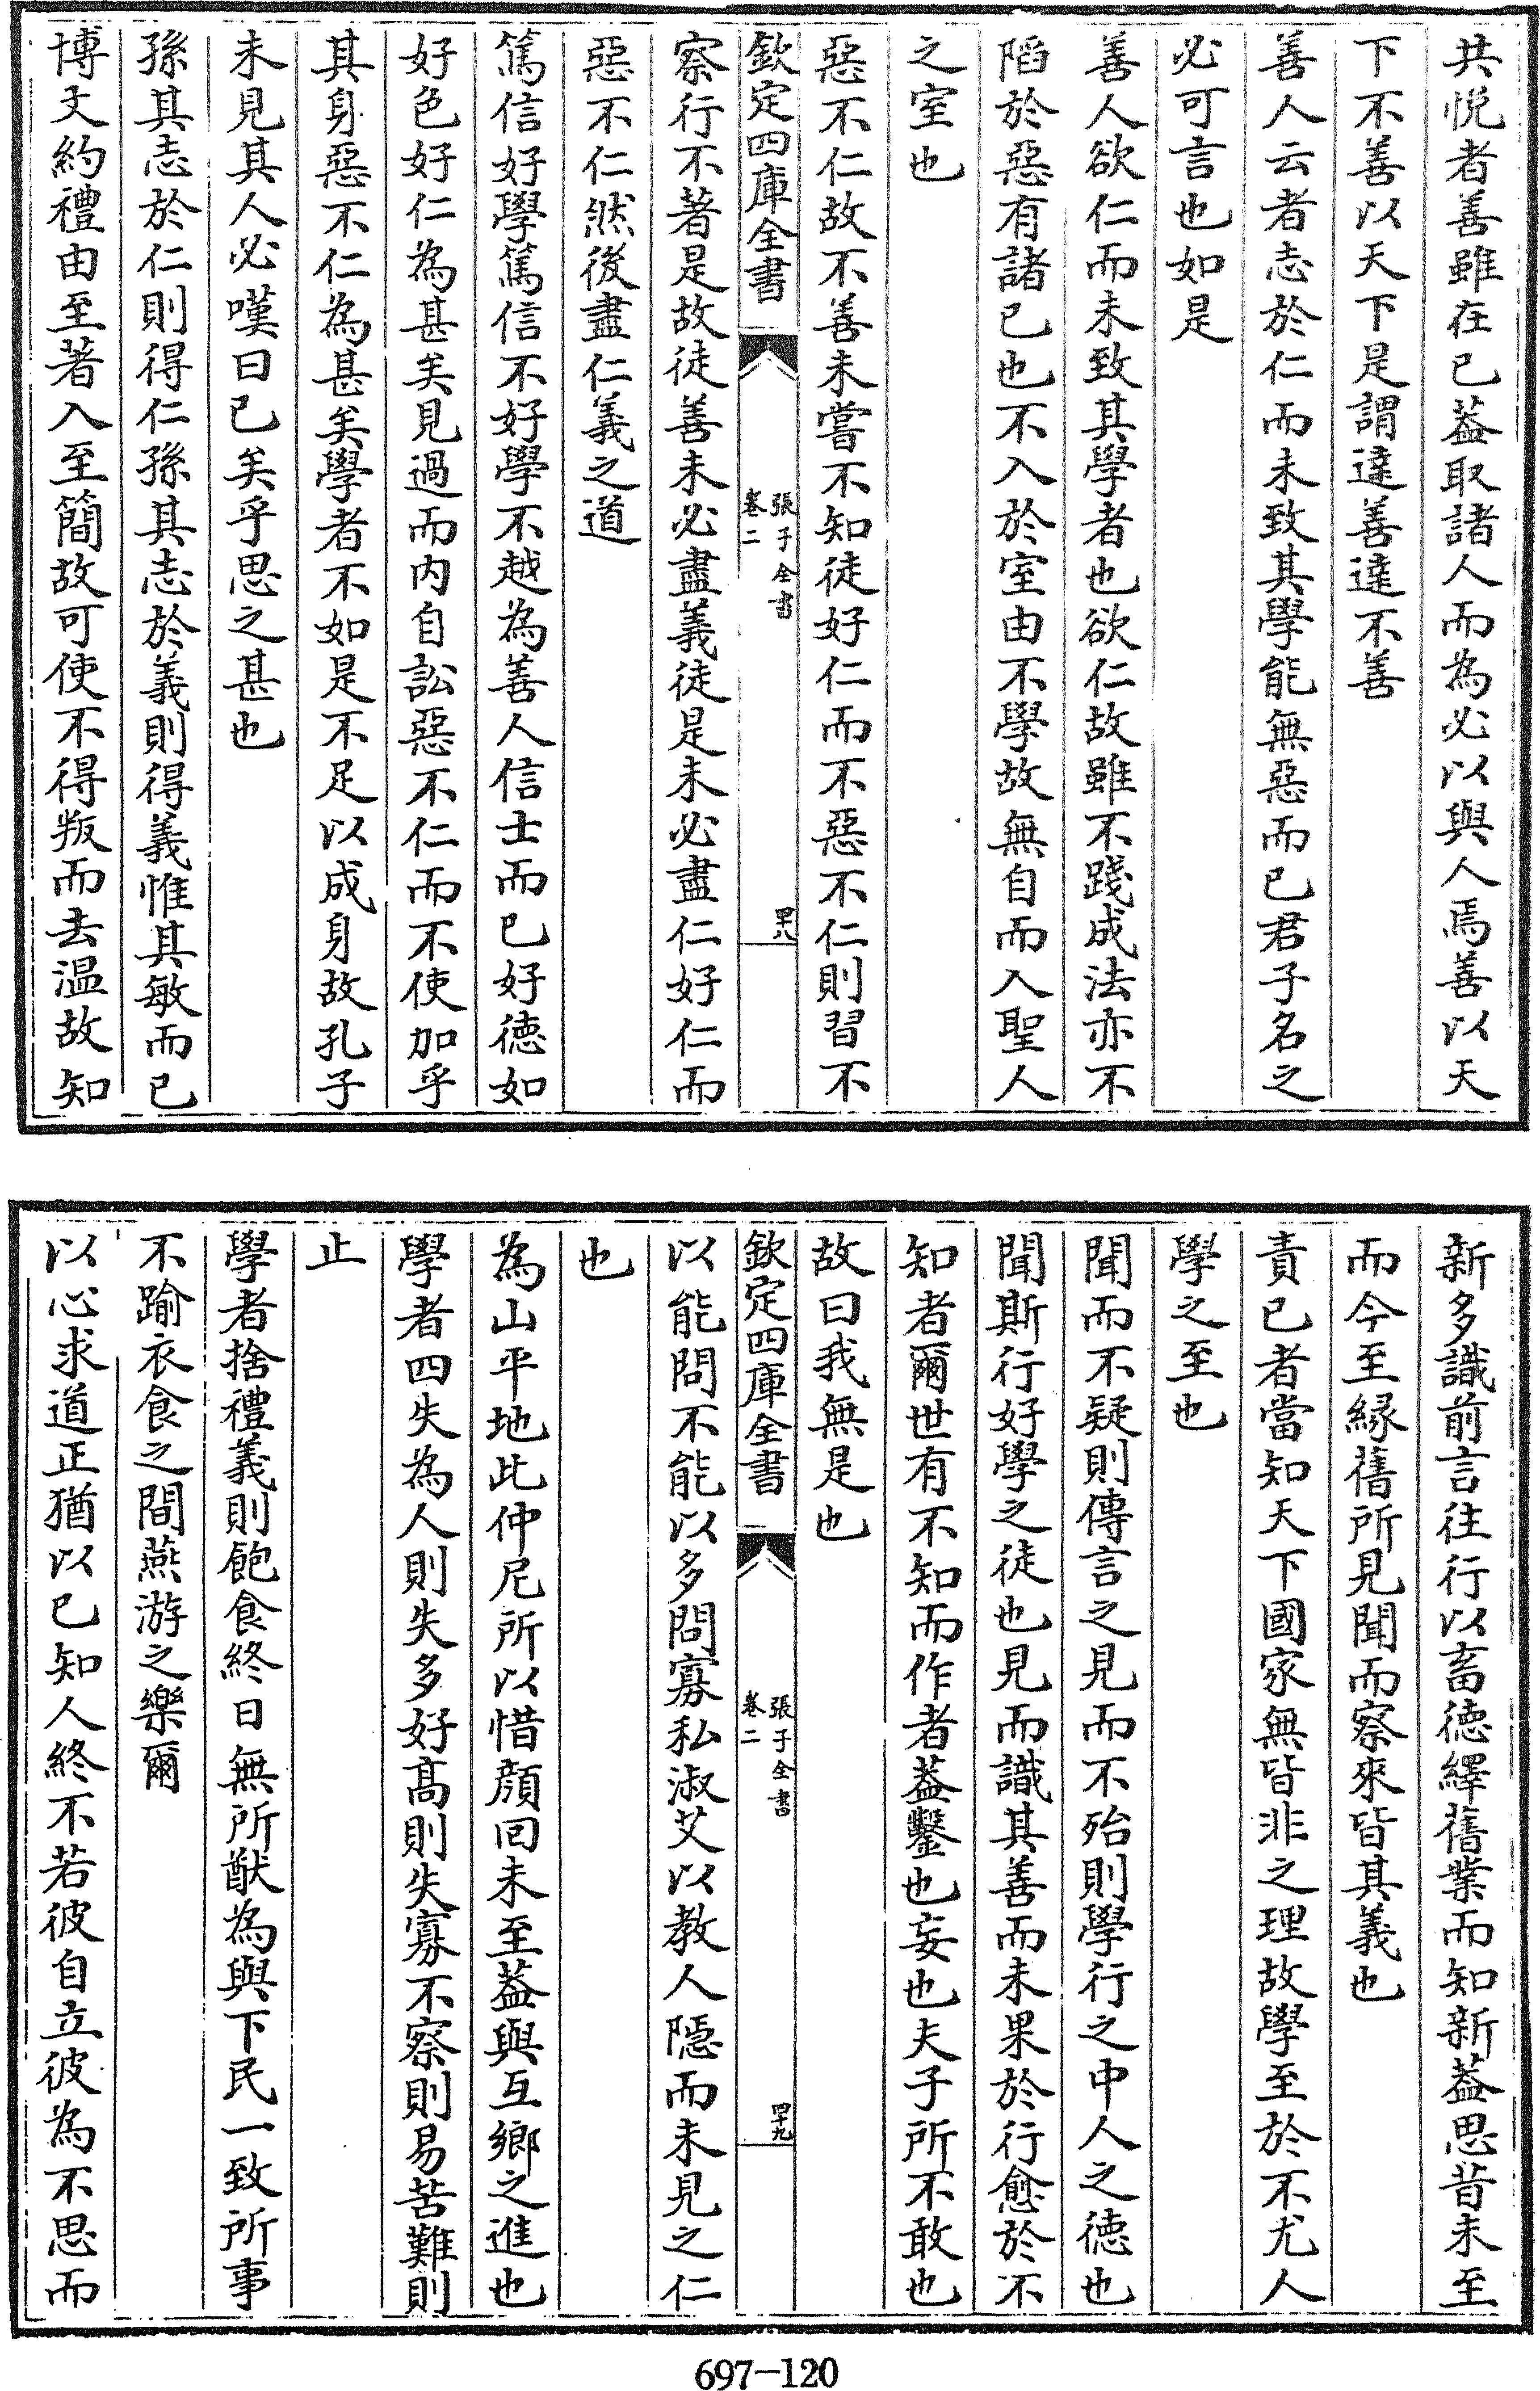 共悦者善雖在已葢取諸人而為必以與人焉善以天
下不善以天下是謂達善達不善
善人云者志於仁而未致其學能無惡而已君子名之
必可言也如是
善人欲仁而未致其學者也欲仁故雖不踐成法亦不
䧟於惡有諸已也不入於室由不學故無自而入聖人
之室也
惡不仁故不善未嘗不知徒好仁而不惡不仁則習不
欽定四庫全書
張子全書
卷二
四十八
察行不著是故徒善未必盡義徒是未必盡仁好仁而
惡不仁然後盡仁義之道
篤信好學篤信不好學不越為善人信士而已好徳如
好色好仁為甚矣見過而内自訟惡不仁而不使加乎
其身惡不仁為甚矣學者不如是不足以成身故孔子
未見其人必嘆曰已矣乎思之甚也
孫其志於仁則得仁孫其志於義則得義惟其敏而已
博文約禮由至著入至簡故可使不得叛而去温故知
新多識前言往行以畜徳繹舊業而知新葢思昔未至
而今至縁舊所見聞而察來皆其義也
責已者當知天下國家無皆非之理故學至於不尤人
學之至也
聞而不疑則傳言之見而不殆則學行之中人之徳也
聞斯行好學之徒也見而識其善而未果於行愈於不
知者爾世有不知而作者葢鑿也妄也夫子所不敢也
故曰我無是也
欽定四庫全書
張子全書
卷二
四十九
以能問不能以多問寡私淑艾以教人隠而未見之仁
也
為山平地此仲尼所以惜顔回未至葢與互鄉之進也
學者四失為人則失多好髙則失寡不察則易苦難則
止
學者捨禮義則飽食終日無所猷為與下民一致所事
不踰衣食之間燕游之樂爾
以心求道正猶以已知人終不若彼自立彼為不思而
697-120